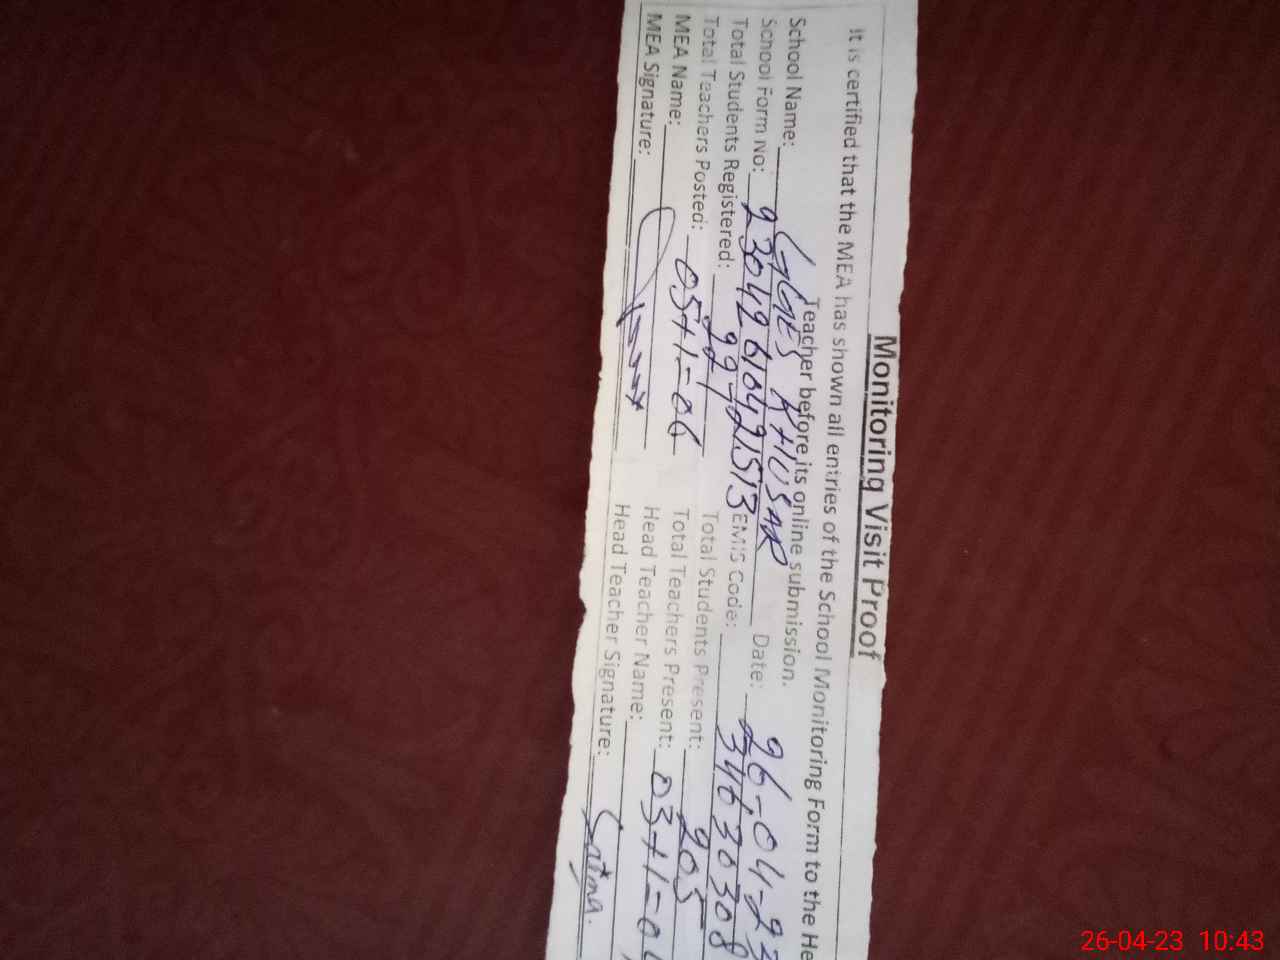 Monitoring Visit Proof
It is certified that the MEA has shown all entries of the School Monitoring Form to the He
Teacher before its online submission.
School Name: GGES KHUSAR Date: 26-04-23
School Form No: 23042610421513 EMIS Code: 34630308
Total Students Registered: Total Students Present: 205
Total Teachers Posted: 05+1=06 Total Teachers Present: 03+1=0
MEA Name: Head Teacher Name:
MEA Signature: Head Teacher Signature:
26-04-23 10:43